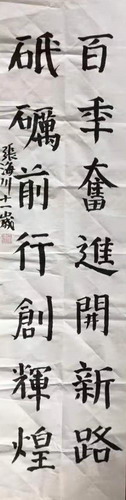 百年奮進開新路
砥礪前行創輝煌
張海川十一歲